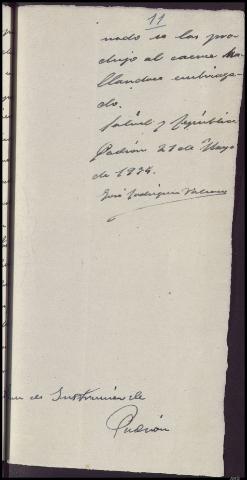 11
nado se las pro-
dujo al caerse ha-
llandose embriaga-
do.
Salud y República
Padrón 21 de Mayo
de 1934.
José Rodríguez
de Instrucción de
Padrón